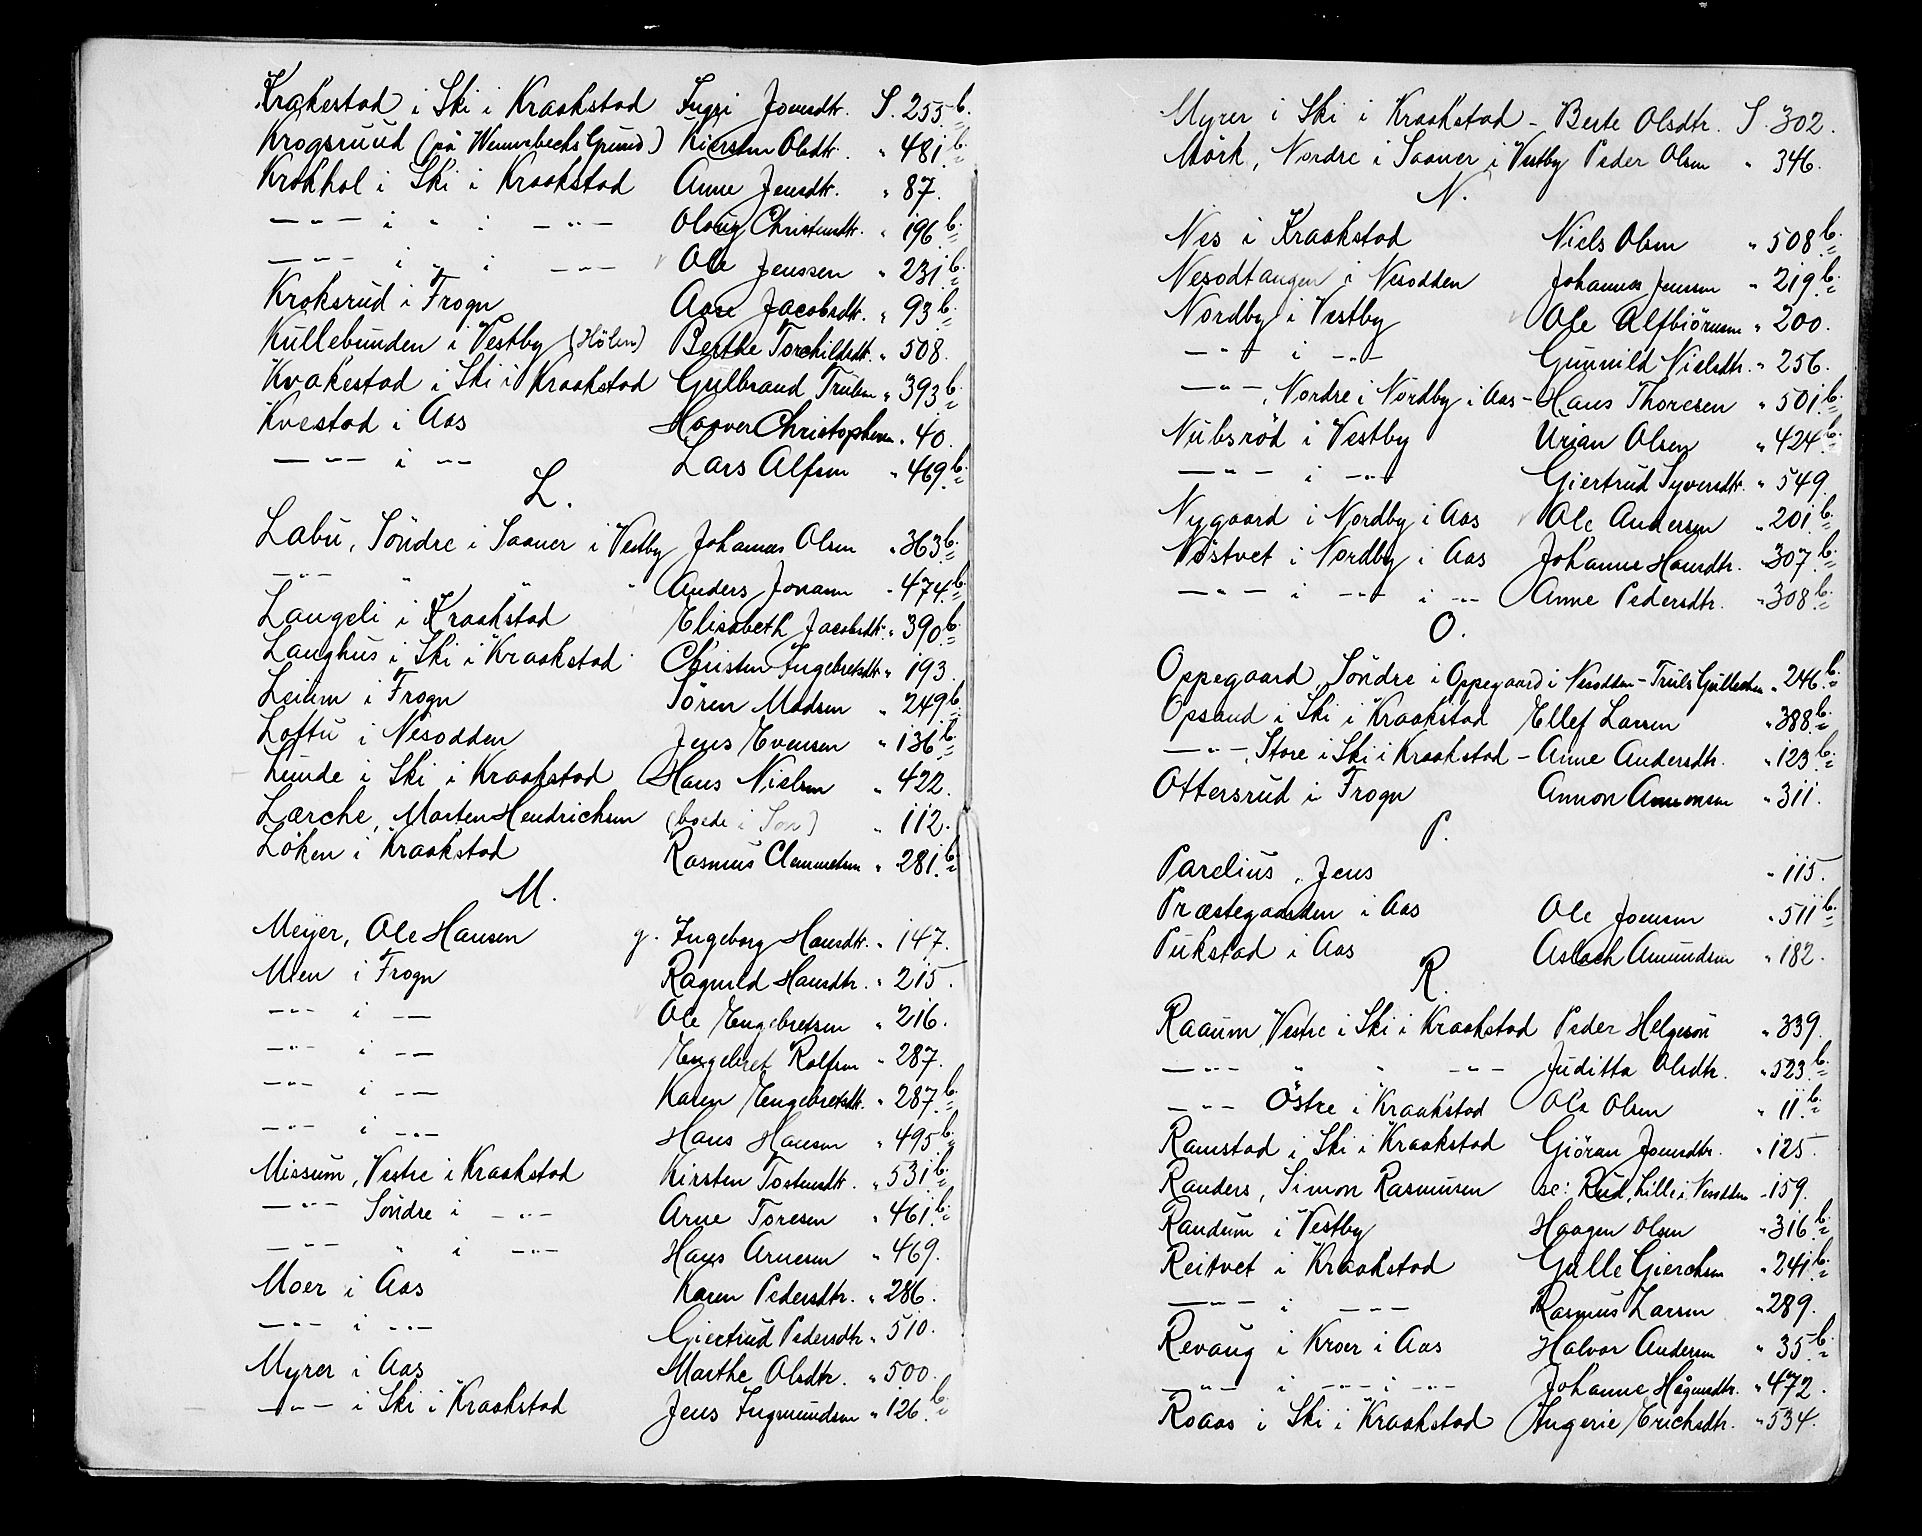 Krakestad i Ski i Kraakstad Ingri Jonsdtr. S. 255 b.
Krogsruud (på Wennsbechs Grund) Kiersten Olsdtr. " 481 b.
Krokhol i Ski i Kraakstad Anne Jensdtr. " 87.
— " — i " i — " — Oloug Christensdtr. " 196 b.
— " — i " i — " — Ole Jenssen " 231 b.
Kroksrud i Frogn Aase Jacobsdtr. " 93 b.
Kullebunden i Vestby (Hölen) Berthe Torchildsdtr. " 508.
Kvakestad i Ski i Kraakstad Gulbrand Trulsen " 393 b.
Kvestad i Aas Haaver Christophersen " 40.
— " — i — " — Lars Alfsen " 469 b.
L.
Labu, Söndre i Saaner i Vestby Johannes Olsen " 363 b.
— " — " " " Anders Jonasen " 474 b.
Langeli i Kraakstad Elisabeth Jacobsdtr. " 390 b.
Langhus i Ski i Kraakstad Christen Ingebretsdtr. " 193.
Leium i Frogn Sören Madsen " 249 b.
Loftu i Nesodden Jens Evensen " 136 b.
Lunde i Ski i Kraakstad Hans Nielsen " 422.
Lærche, Morten Hendrichsen (boede i Son) " 112.
Löken i Kraakstad Rasmus Clemmetsen " 281 b.
M.
Meyer, Ole Hansen g. Ingeborg Hansdtr. " 147.
Men i Frogn Ragnild Hansdtr. " 215.
— " — i — " — Ole Engebretsen " 216.
— " — i — " — Engebret Rolfsen " 287.
— " — i — " — Karen Engebretsdtr. " 287 b.
— " — i — " — Hans Hansen " 495 b.
Missum, Vestre i Kraakstad Kirsten Tostensdtr. " 531 b.
— " — Söndre i — " — Arne Toresen " 461 b.
— " — " i — " — Hans Arnesen " 469.
Moer i Aas Karen Pedersdtr. " 286.
— " — i — " — Giertrud Pedersdtr. " 510.
Myrer i Aas Marthe Olsdtr. " 500.
— " — i Ski i Kraakstad Jens Ingmundsen " 126 b.
Myrer i Ski i Kraakstad - Berte Olsdtr. S. 302.
Mörk, Nordre i Saaner i Vestby Peder Olsen " 346.
N.
Nes i Kraakstad Niels Olsen " 508 b.
Nesodtangen i Nesodden Johannes Jensen " 219 b.
Nordby i Vestby Ole Alfbiörnsen " 200.
— " — i — " — Gunnild Nielsdtr. " 256.
— " —, Nordre i Nordby i Aas - Hans Thoresen " 501 b.
Nubsröd i Vestby Urian Olsen " 424 b.
— " — i — " — Giertrud Syversdtr. " 549.
Nygaard i Nordby i Aas Ole Andersen " 201 b.
Nöstvet i Nordby i Aas Johanne Hansdtr. " 307 b.
— " — i — " — i — " — Anne Pedersdtr. " 308 b.
O.
Oppegaard, Söndre i Oppegaard i Nesodden - Truls Gullesen " 246 b.
Opsand i Ski i Kraakstad Ellef Larsen " 388 b.
— " —, Store i Ski i Kraakstad - Anne Andersdtr. " 123 b.
Ottersrud i Frogn Ammon Ammonsen " 311.
P.
Parelius, Jens " 115.
Præstegaarden i Aas Ole Joensen " 511 b.
Pukstad i Aas Aslach Amundsen " 182.
R.
Raaum, Vestre i Ski i Kraakstad Peder Helgesön " 339.
— " — " " — " — Juditta Olsdtr. " 523 b.
— " — Östre i Kraakstad Ole Olsen " 11 b.
Ramstad i Ski i Kraakstad Giöran Jonsdtr. " 125.
Randers, Simon Rasmusen se: Rud, Lille i Nesodden " 159.
Randum i Vestby Haagen Olsen " 316 b.
Reitvet i Kraakstad Gulle Gierchsen " 241 b.
— " — i — " — Rasmus Larsen " 289.
Revaug i Kroer i Aas Halvor Andersen " 35 b.
— " — i — " — i — " — Johanne Hågensdtr. " 472.
Roaas i Ski i Kraakstad Ingerie Erichsdtr. " 534.